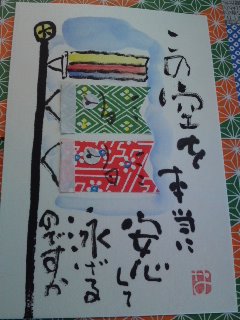 この空を
本当に
安心して
泳げる
のですか